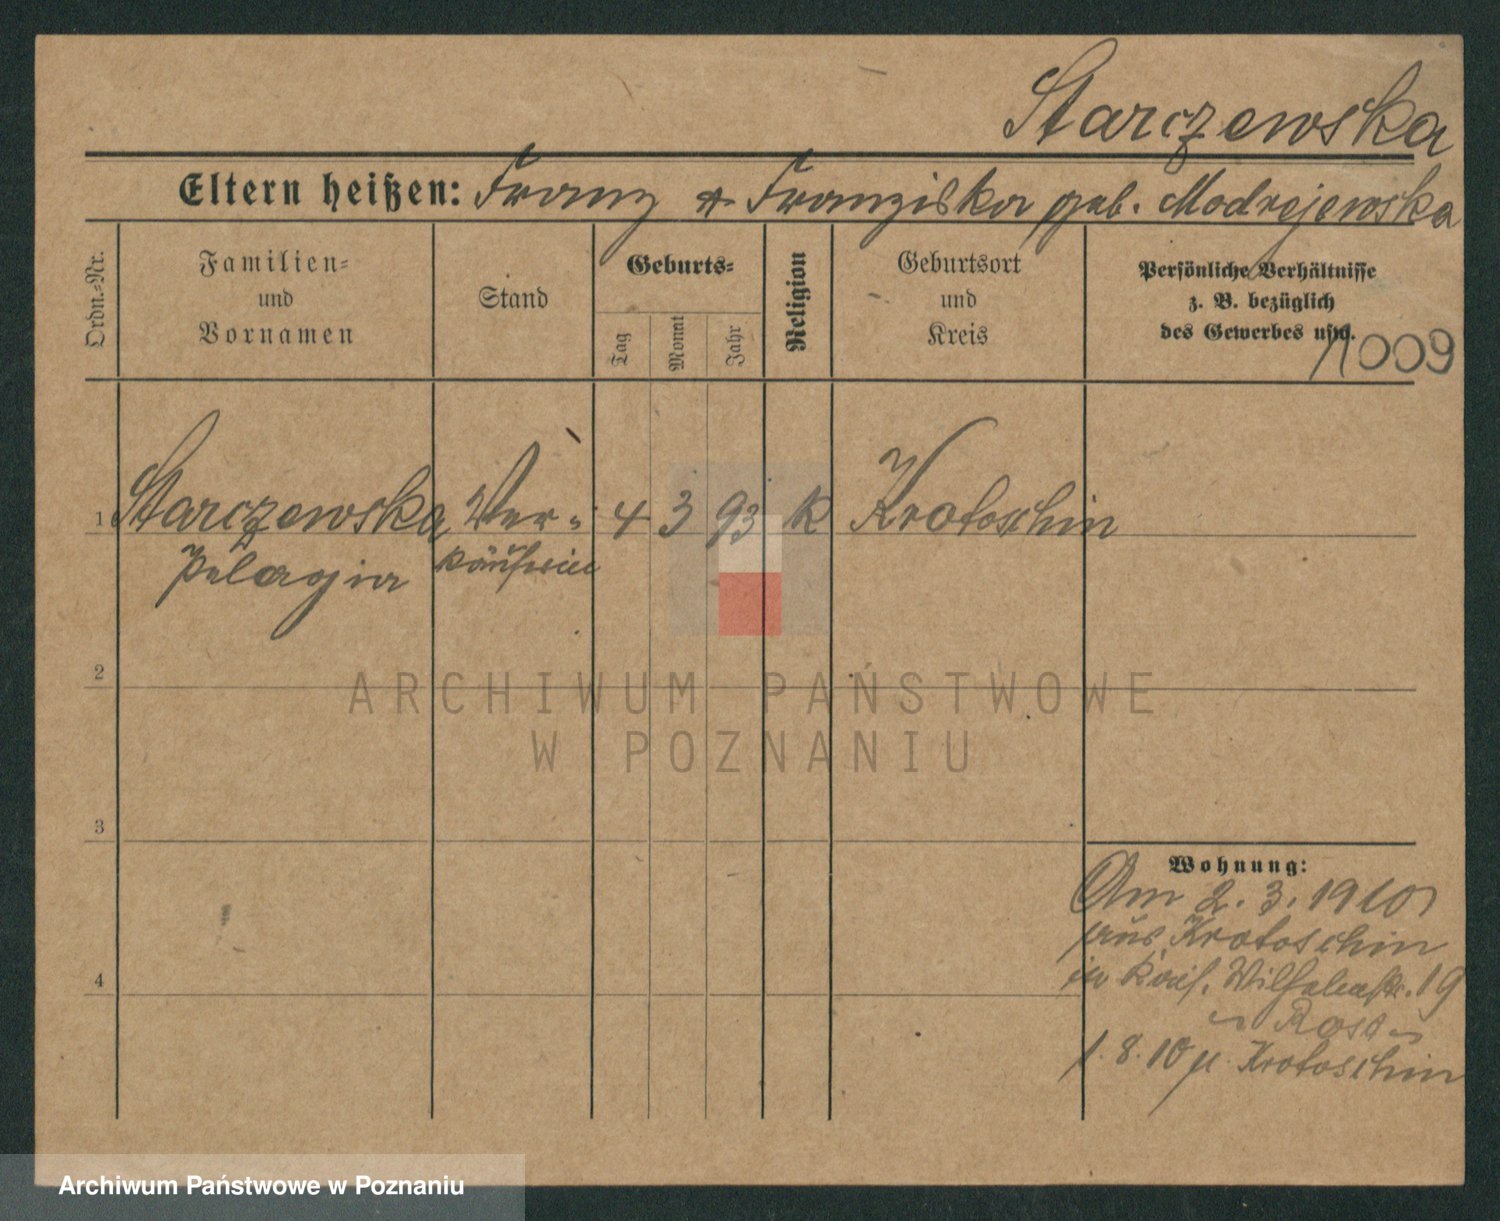 Starczewska
Eltern heißen: Franz & Franziska geb. Modrejewska
Ordn.-Nr.
Familien-
und
Vornamen
Stand
Geburts-
Tag
Monat
Jahr
Religion
Geburtsort
und
Kreis
Persönliche Verhältnisse
z. B. bezüglich
des Gewerbes usw.
1009
1 Starczewska Ver- 4 3 93 k Krotoschin
Pelagia käuferin
2
ARCHIWUM PAŃSTWOWE
W POZNANIU
3
Wohnung:
Am 2.3.1910
aus Krotoschin
4
in Kais. Wilhelmstr. 19
1.8.10 Krotoschin
Archiwum Państwowe w Poznaniu